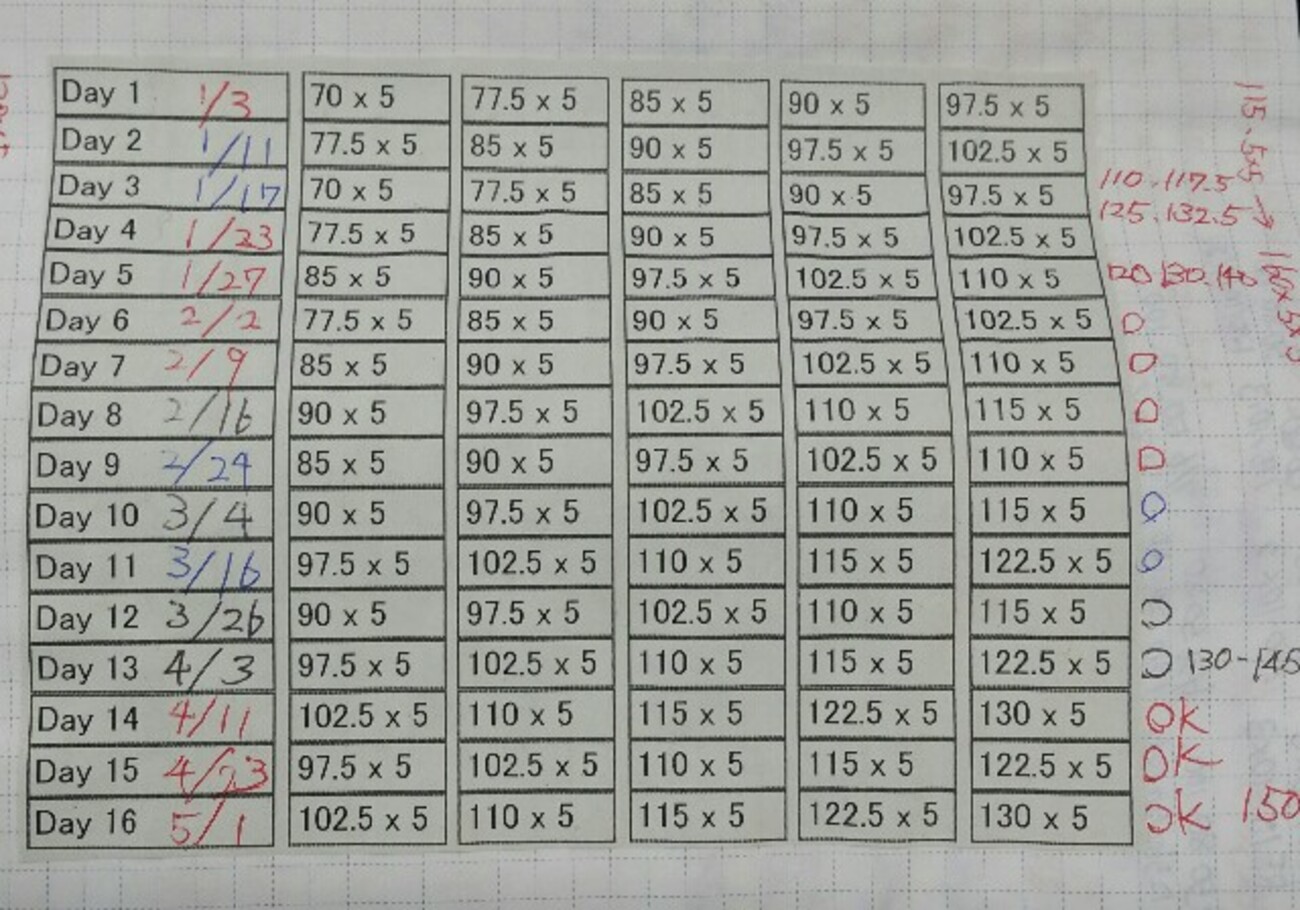 Day 1 1/3 70 x 5 77.5 x 5 85 x 5 90 x 5 97.5 x 5
Day 2 1/11 77.5 x 5 85 x 5 90 x 5 97.5 x 5 102.5 x 5
Day 3 1/17 70 x 5 77.5 x 5 85 x 5 90 x 5 97.5 x 5 110.117.5
125.132.5
Day 4 1/23 77.5 x 5 85 x 5 90 x 5 97.5 x 5 102.5 x 5
Day 5 1/27 85 x 5 90 x 5 97.5 x 5 102.5 x 5 110 x 5 120 130.140
Day 6 2/2 77.5 x 5 85 x 5 90 x 5 97.5 x 5 102.5 x 5 O
Day 7 2/9 85 x 5 90 x 5 97.5 x 5 102.5 x 5 110 x 5 O
Day 8 2/16 90 x 5 97.5 x 5 102.5 x 5 110 x 5 115 x 5 O
Day 9 2/24 85 x 5 90 x 5 97.5 x 5 102.5 x 5 110 x 5 O
Day 10 3/4 90 x 5 97.5 x 5 102.5 x 5 110 x 5 115 x 5 O
Day 11 3/16 97.5 x 5 102.5 x 5 110 x 5 115 x 5 122.5 x 5 O
Day 12 3/26 90 x 5 97.5 x 5 102.5 x 5 110 x 5 115 x 5 O
Day 13 4/3 97.5 x 5 102.5 x 5 110 x 5 115 x 5 122.5 x 5 O 130-145
Day 14 4/11 102.5 x 5 110 x 5 115 x 5 122.5 x 5 130 x 5 OK
Day 15 4/23 97.5 x 5 102.5 x 5 110 x 5 115 x 5 122.5 x 5 OK
Day 16 5/1 102.5 x 5 110 x 5 115 x 5 122.5 x 5 130 x 5 OK 150